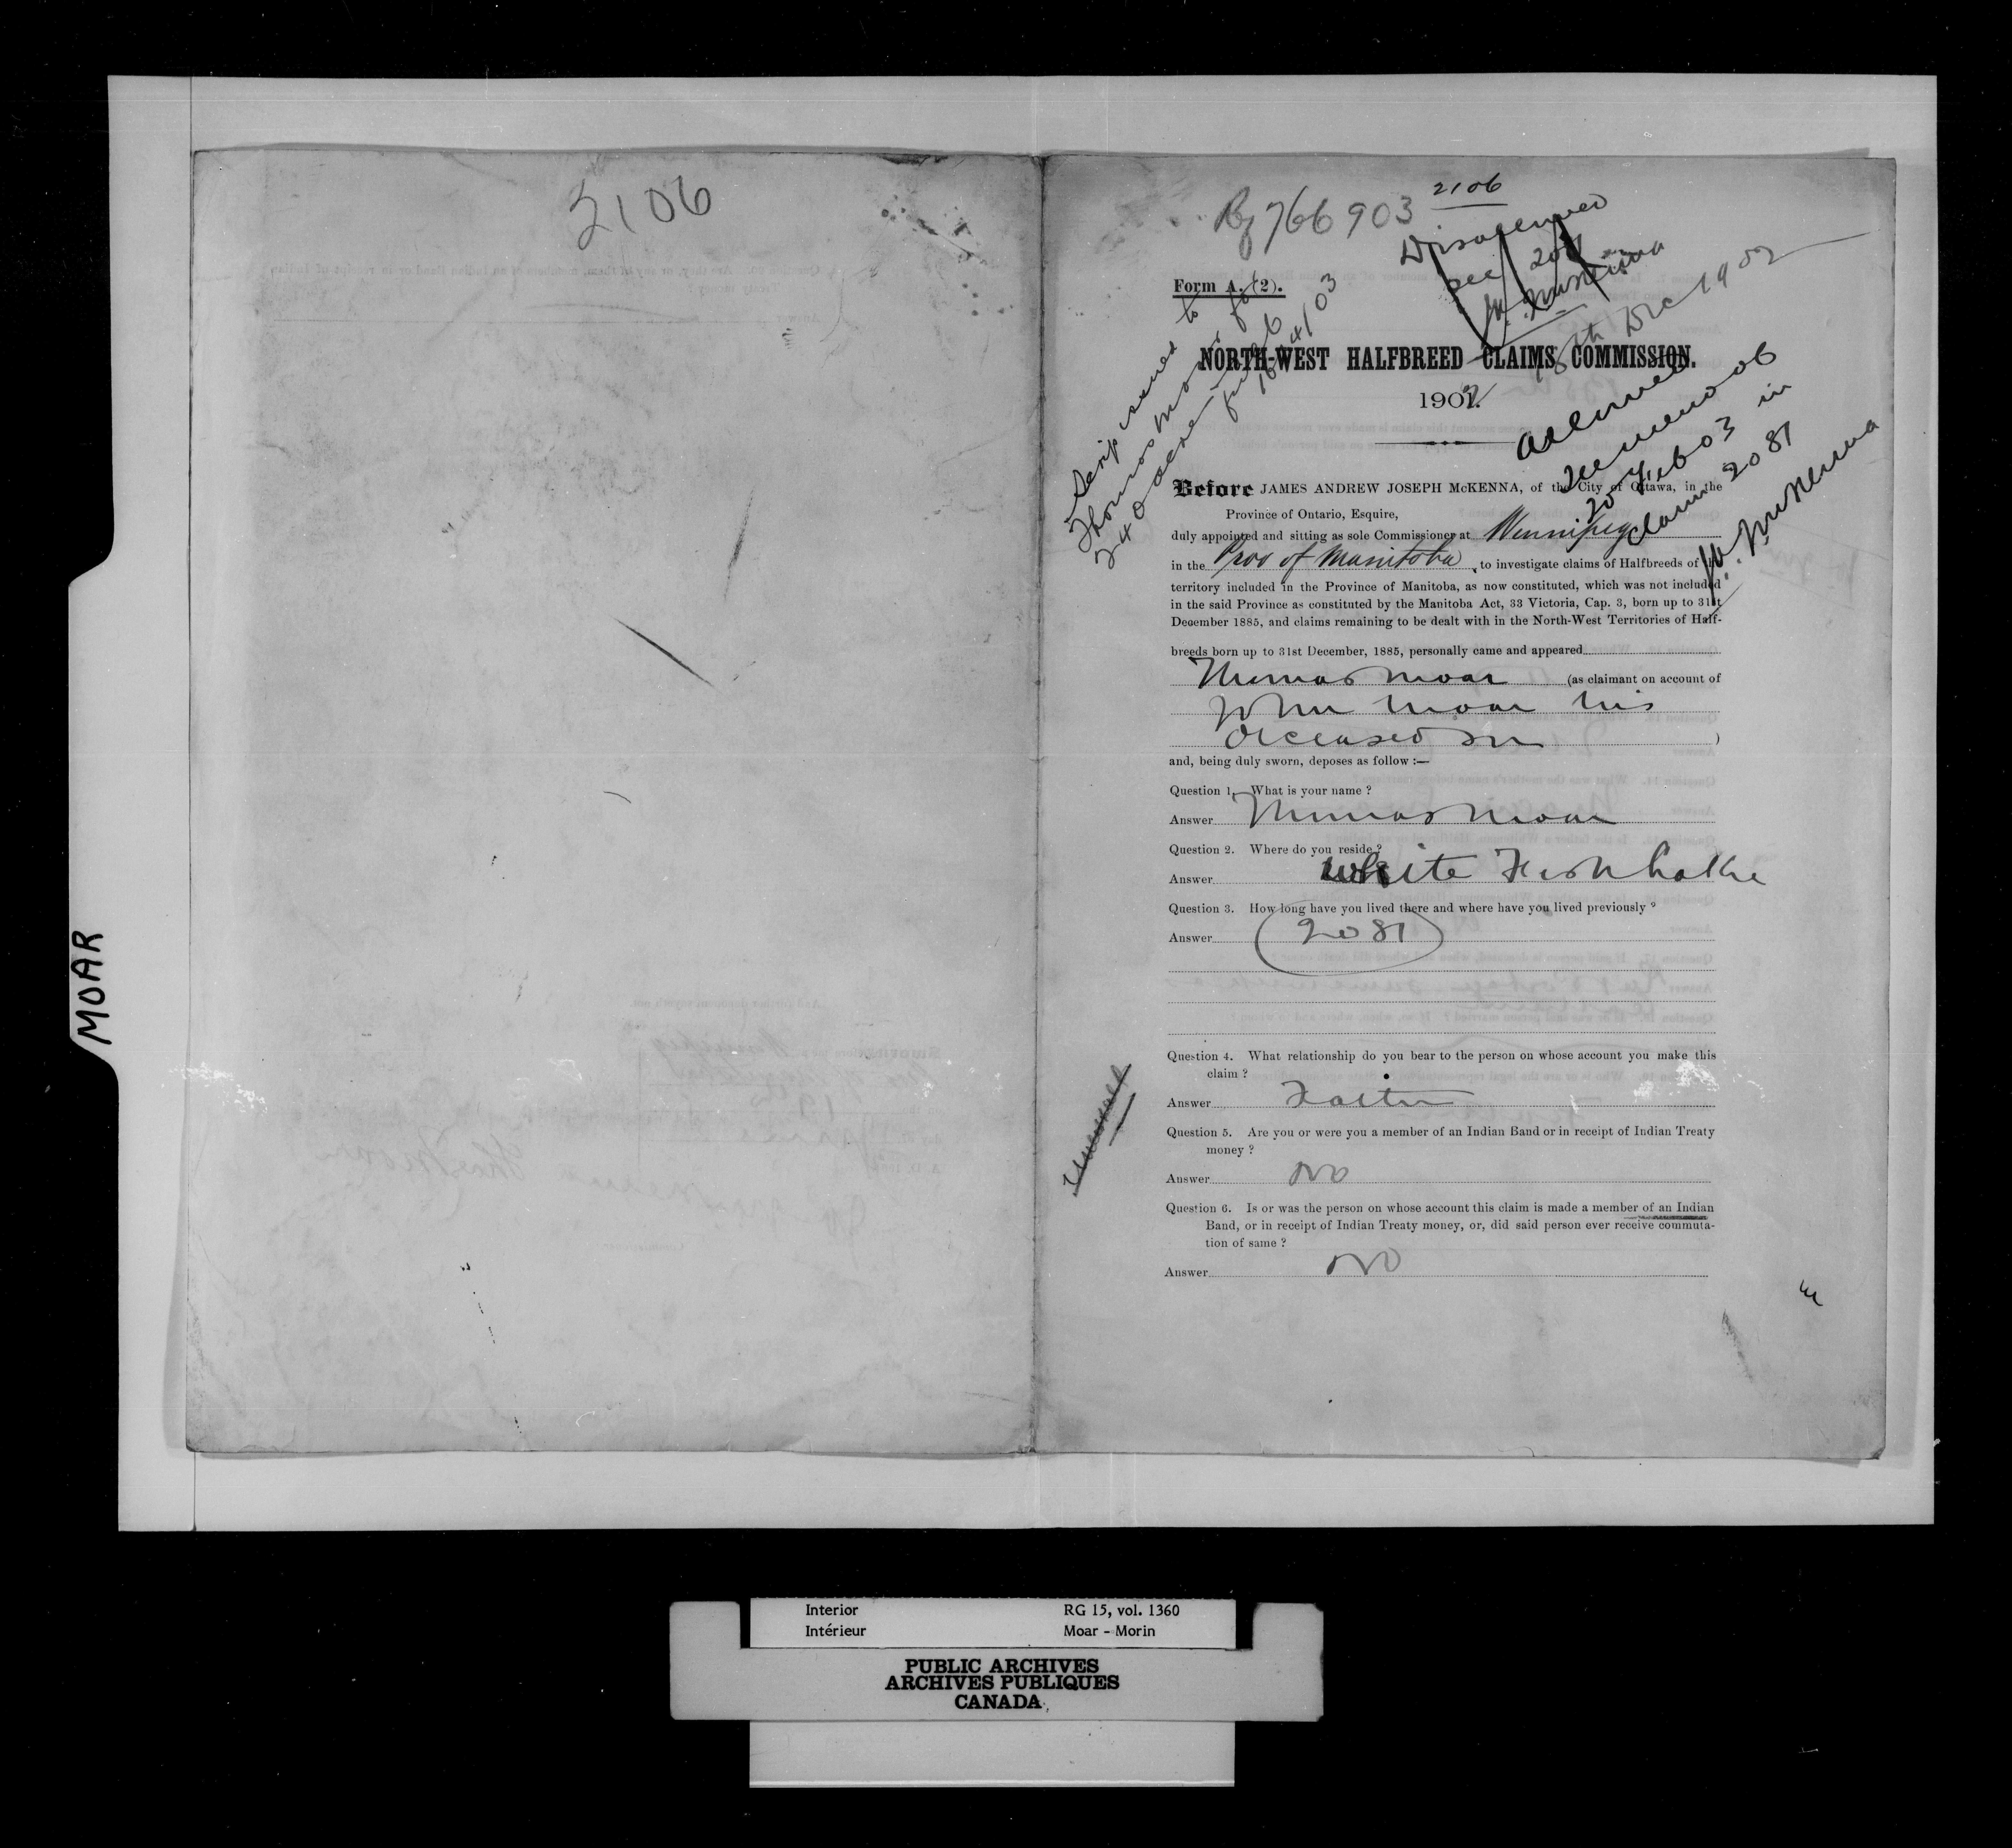 MOAR
2106
2106
Rg 766903
Disallowed
see 2081
McKenna
18th Dec 1902
Form A. (2).
Scrip issued to
Thomas Moar for
240 acres
16/4/03
NORTH-WEST HALFBREED CLAIMS COMMISSION.
1902.
Allowed
See memo of
20 Feb 03 in
claim 2081
McKenna
Before JAMES ANDREW JOSEPH McKENNA, of the City of Ottawa, in the
Province of Ontario, Esquire,
duly appointed and sitting as sole Commissioner at Winnipeg
in the Prov of Manitoba, to investigate claims of Halfbreeds of the
territory included in the Province of Manitoba, as now constituted, which was not included
in the said Province as constituted by the Manitoba Act, 33 Victoria, Cap. 3, born up to 31st
December 1885, and claims remaining to be dealt with in the North-West Territories of Half-
breeds born up to 31st December, 1885, personally came and appeared
Thomas Moar (as claimant on account of
John Moar his
deceased son )
and, being duly sworn, deposes as follow :—
Question 1. What is your name ?
Answer Thomas Moar
Question 2. Where do you reside ?
Answer White Fish Lake
Question 3. How long have you lived there and where have you lived previously ?
Answer (2081)
Question 4. What relationship do you bear to the person on whose account you make this
claim ?
Answer Father
Question 5. Are you or were you a member of an Indian Band or in receipt of Indian Treaty
money ?
Answer No
Question 6. Is or was the person on whose account this claim is made a member of an Indian
Band, or in receipt of Indian Treaty money, or, did said person ever receive commuta-
tion of same ?
Answer No
Interior RG 15, vol. 1360
Intérieur Moar - Morin
PUBLIC ARCHIVES
ARCHIVES PUBLIQUES
CANADA